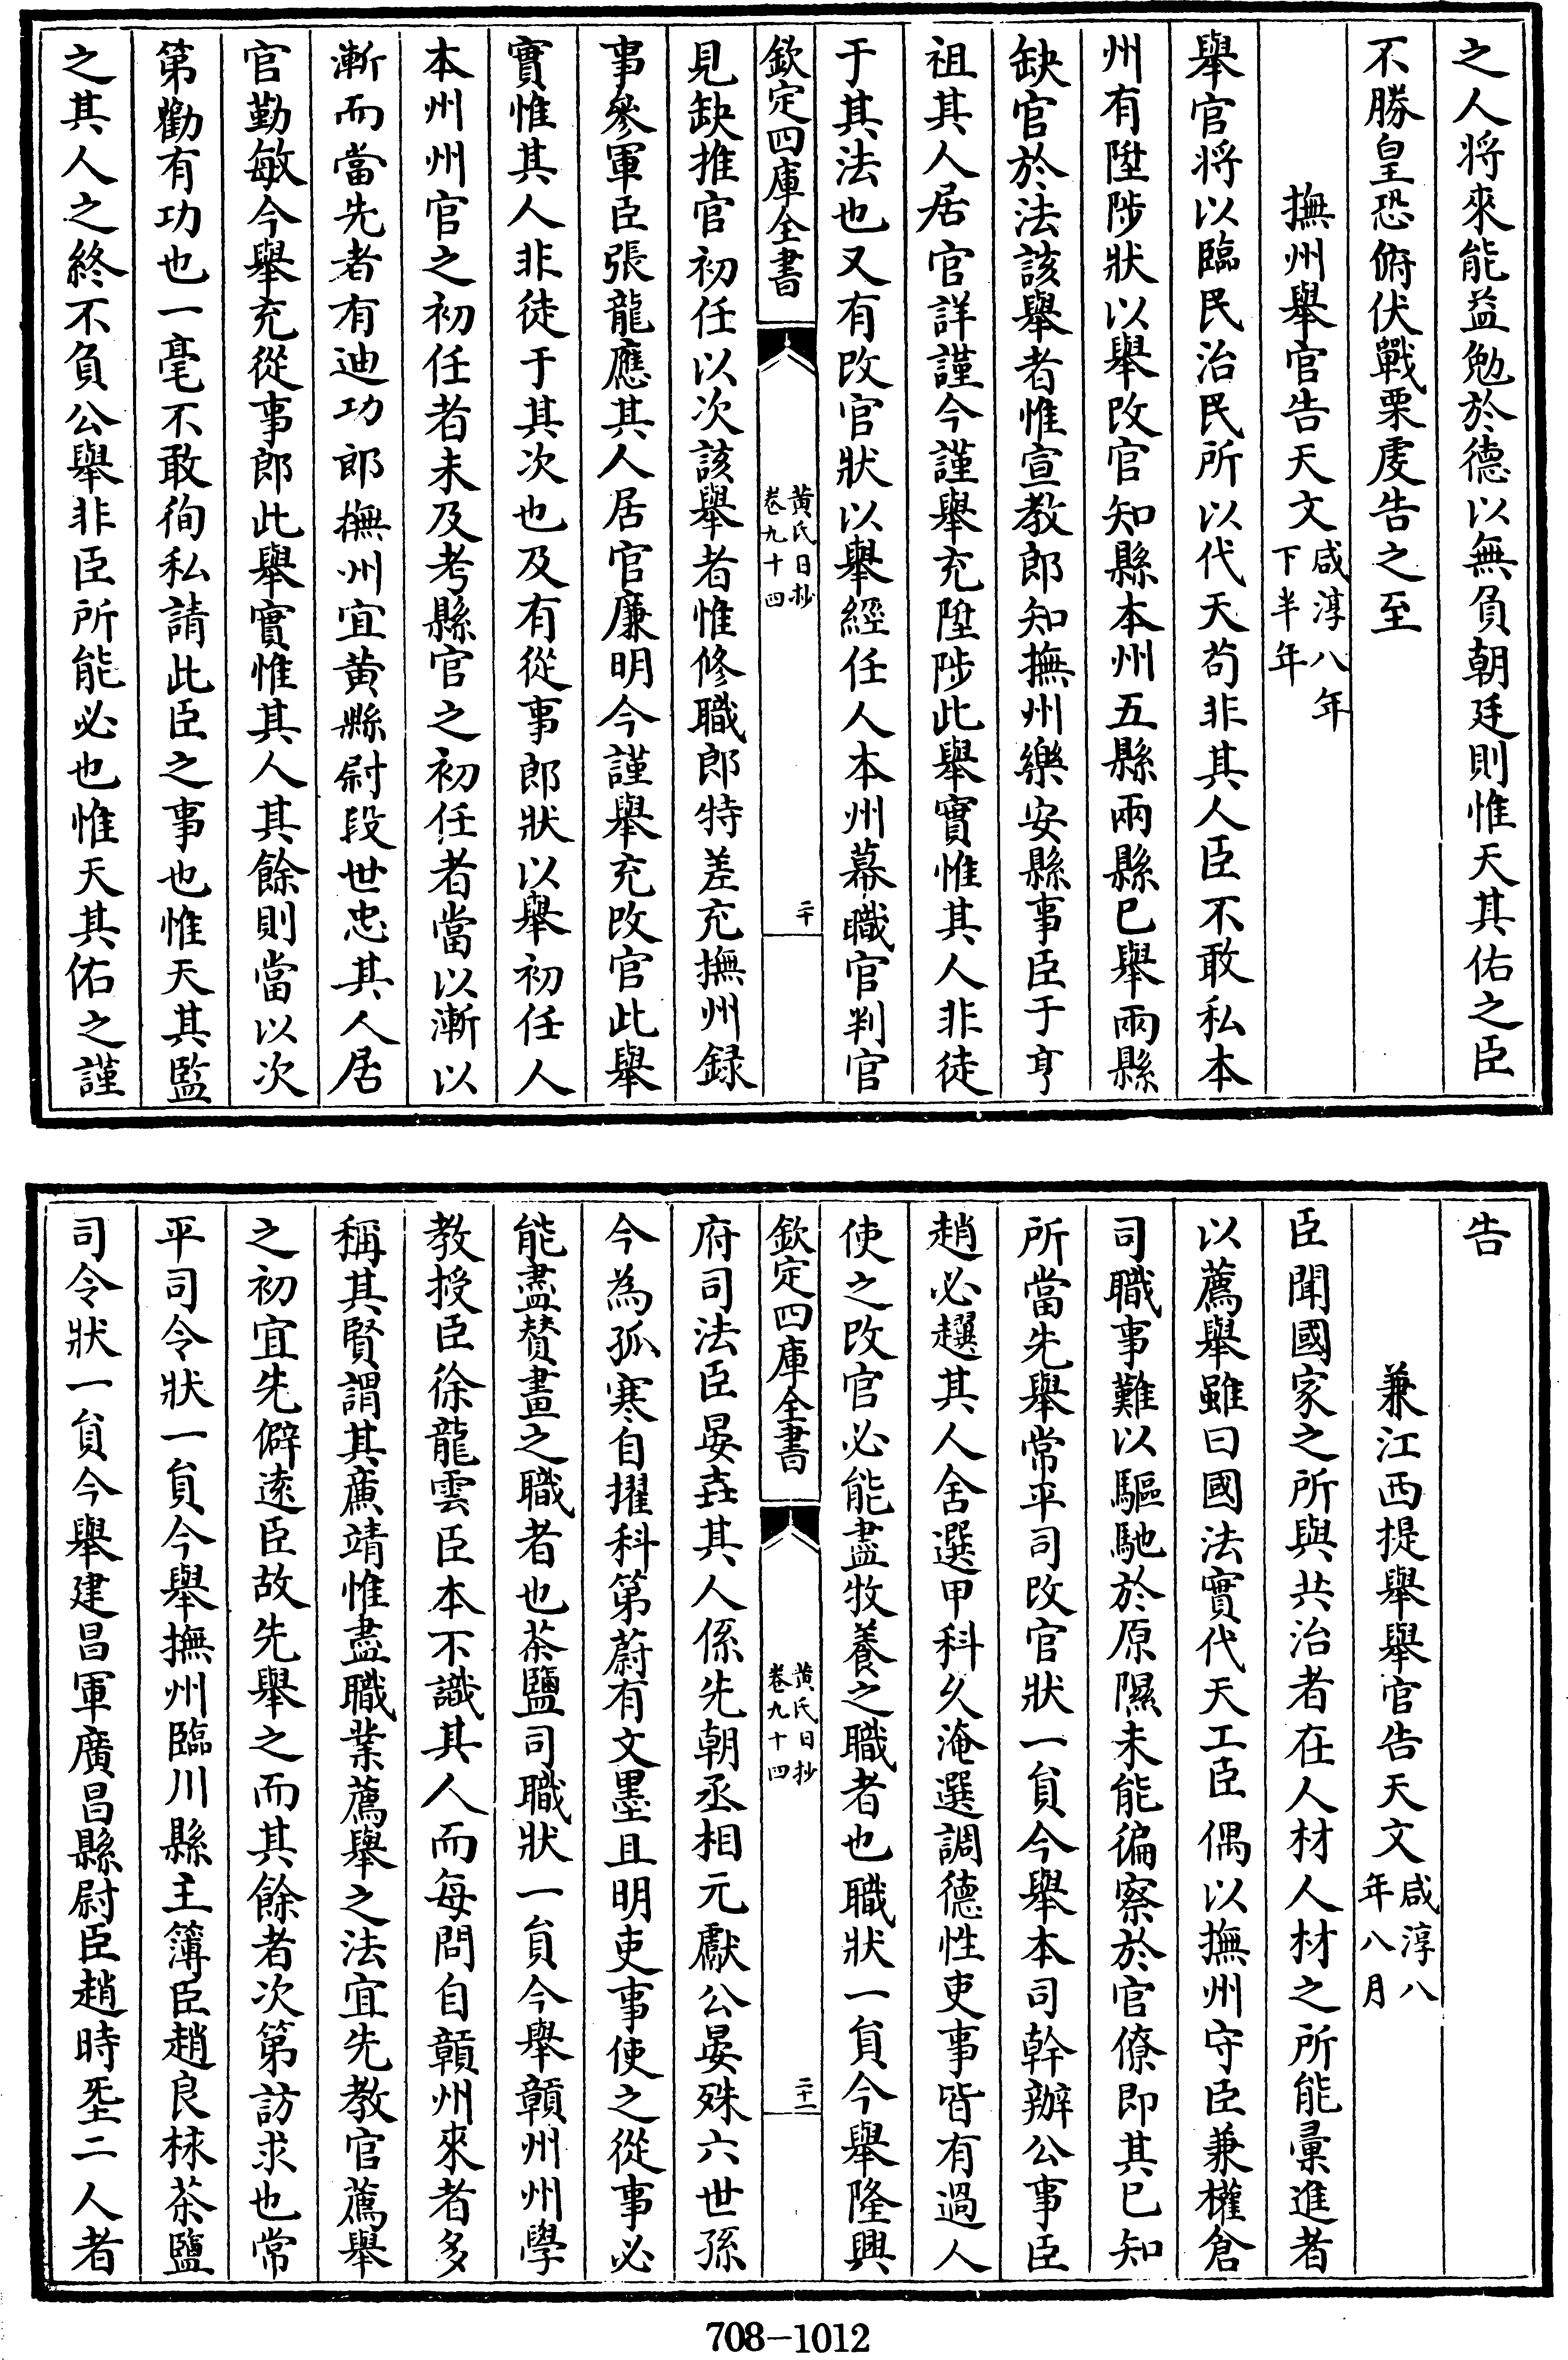 之人將來能益勉於德以無負朝廷則惟天其佑之臣
不勝皇恐俯伏戰栗虔告之至
撫州舉官告天文咸淳八年下半年
舉官將以臨民治民所以代天苟非其人臣不敢私本
州有陞陟狀以舉改官知縣本州五縣兩縣已舉兩縣
缺官於法該舉者惟宣教郎知撫州樂安縣事臣于亨
祖其人居官詳謹今謹舉充陞陟此舉實惟其人非徒
于其法也又有改官狀以舉經任人本州幕職官判官
欽定四庫全書
黃氏日抄
卷九十四
二十
見缺推官初任以次該舉者惟修職郎特差充撫州録
事參軍臣張龍應其人居官廉明今謹舉充改官此舉
實惟其人非徒于其次也及有從事郎狀以舉初任人
本州州官之初任者未及考縣官之初任者當以漸以
漸而當先者有迪功郎撫州宜黃縣尉段世忠其人居
官勤敏今舉充從事郎此舉實惟其人其餘則當以次
第勸有功也一毫不敢徇私請此臣之事也惟天其監
之其人之終不負公舉非臣所能必也惟天其佑之謹
告
兼江西提舉舉官告天文咸淳八年八月
臣聞國家之所與共治者在人材人材之所能彙進者
以薦舉雖曰國法實代天工臣偶以撫州守臣兼權倉
司職事難以驅馳於原隰未能徧察於官僚即其已知
所當先舉常平司改官狀一員今舉本司幹辦公事臣
趙必𣚴其人舍選甲科久淹選調德性吏事皆有過人
使之改官必能盡牧養之職者也職狀一員今舉隆興
欽定四庫全書
黃氏日抄
卷九十四
二十一
府司法臣晏垚其人係先朝丞相元獻公晏殊六世孫
今為孤寒自擢科第蔚有文墨且明吏事使之從事必
能盡贊畫之職者也茶鹽司職狀一員今舉贛州州學
教授臣徐龍雲臣本不識其人而每問自贛州來者多
稱其賢謂其廉靖惟盡職業薦舉之法宜先教官薦舉
之初宜先僻遠臣故先舉之而其餘者次第訪求也常
平司令狀一員今舉撫州臨川縣主簿臣趙良㭐茶鹽
司令狀一員今舉建昌軍廣昌縣尉臣趙時坖二人者
708-1012